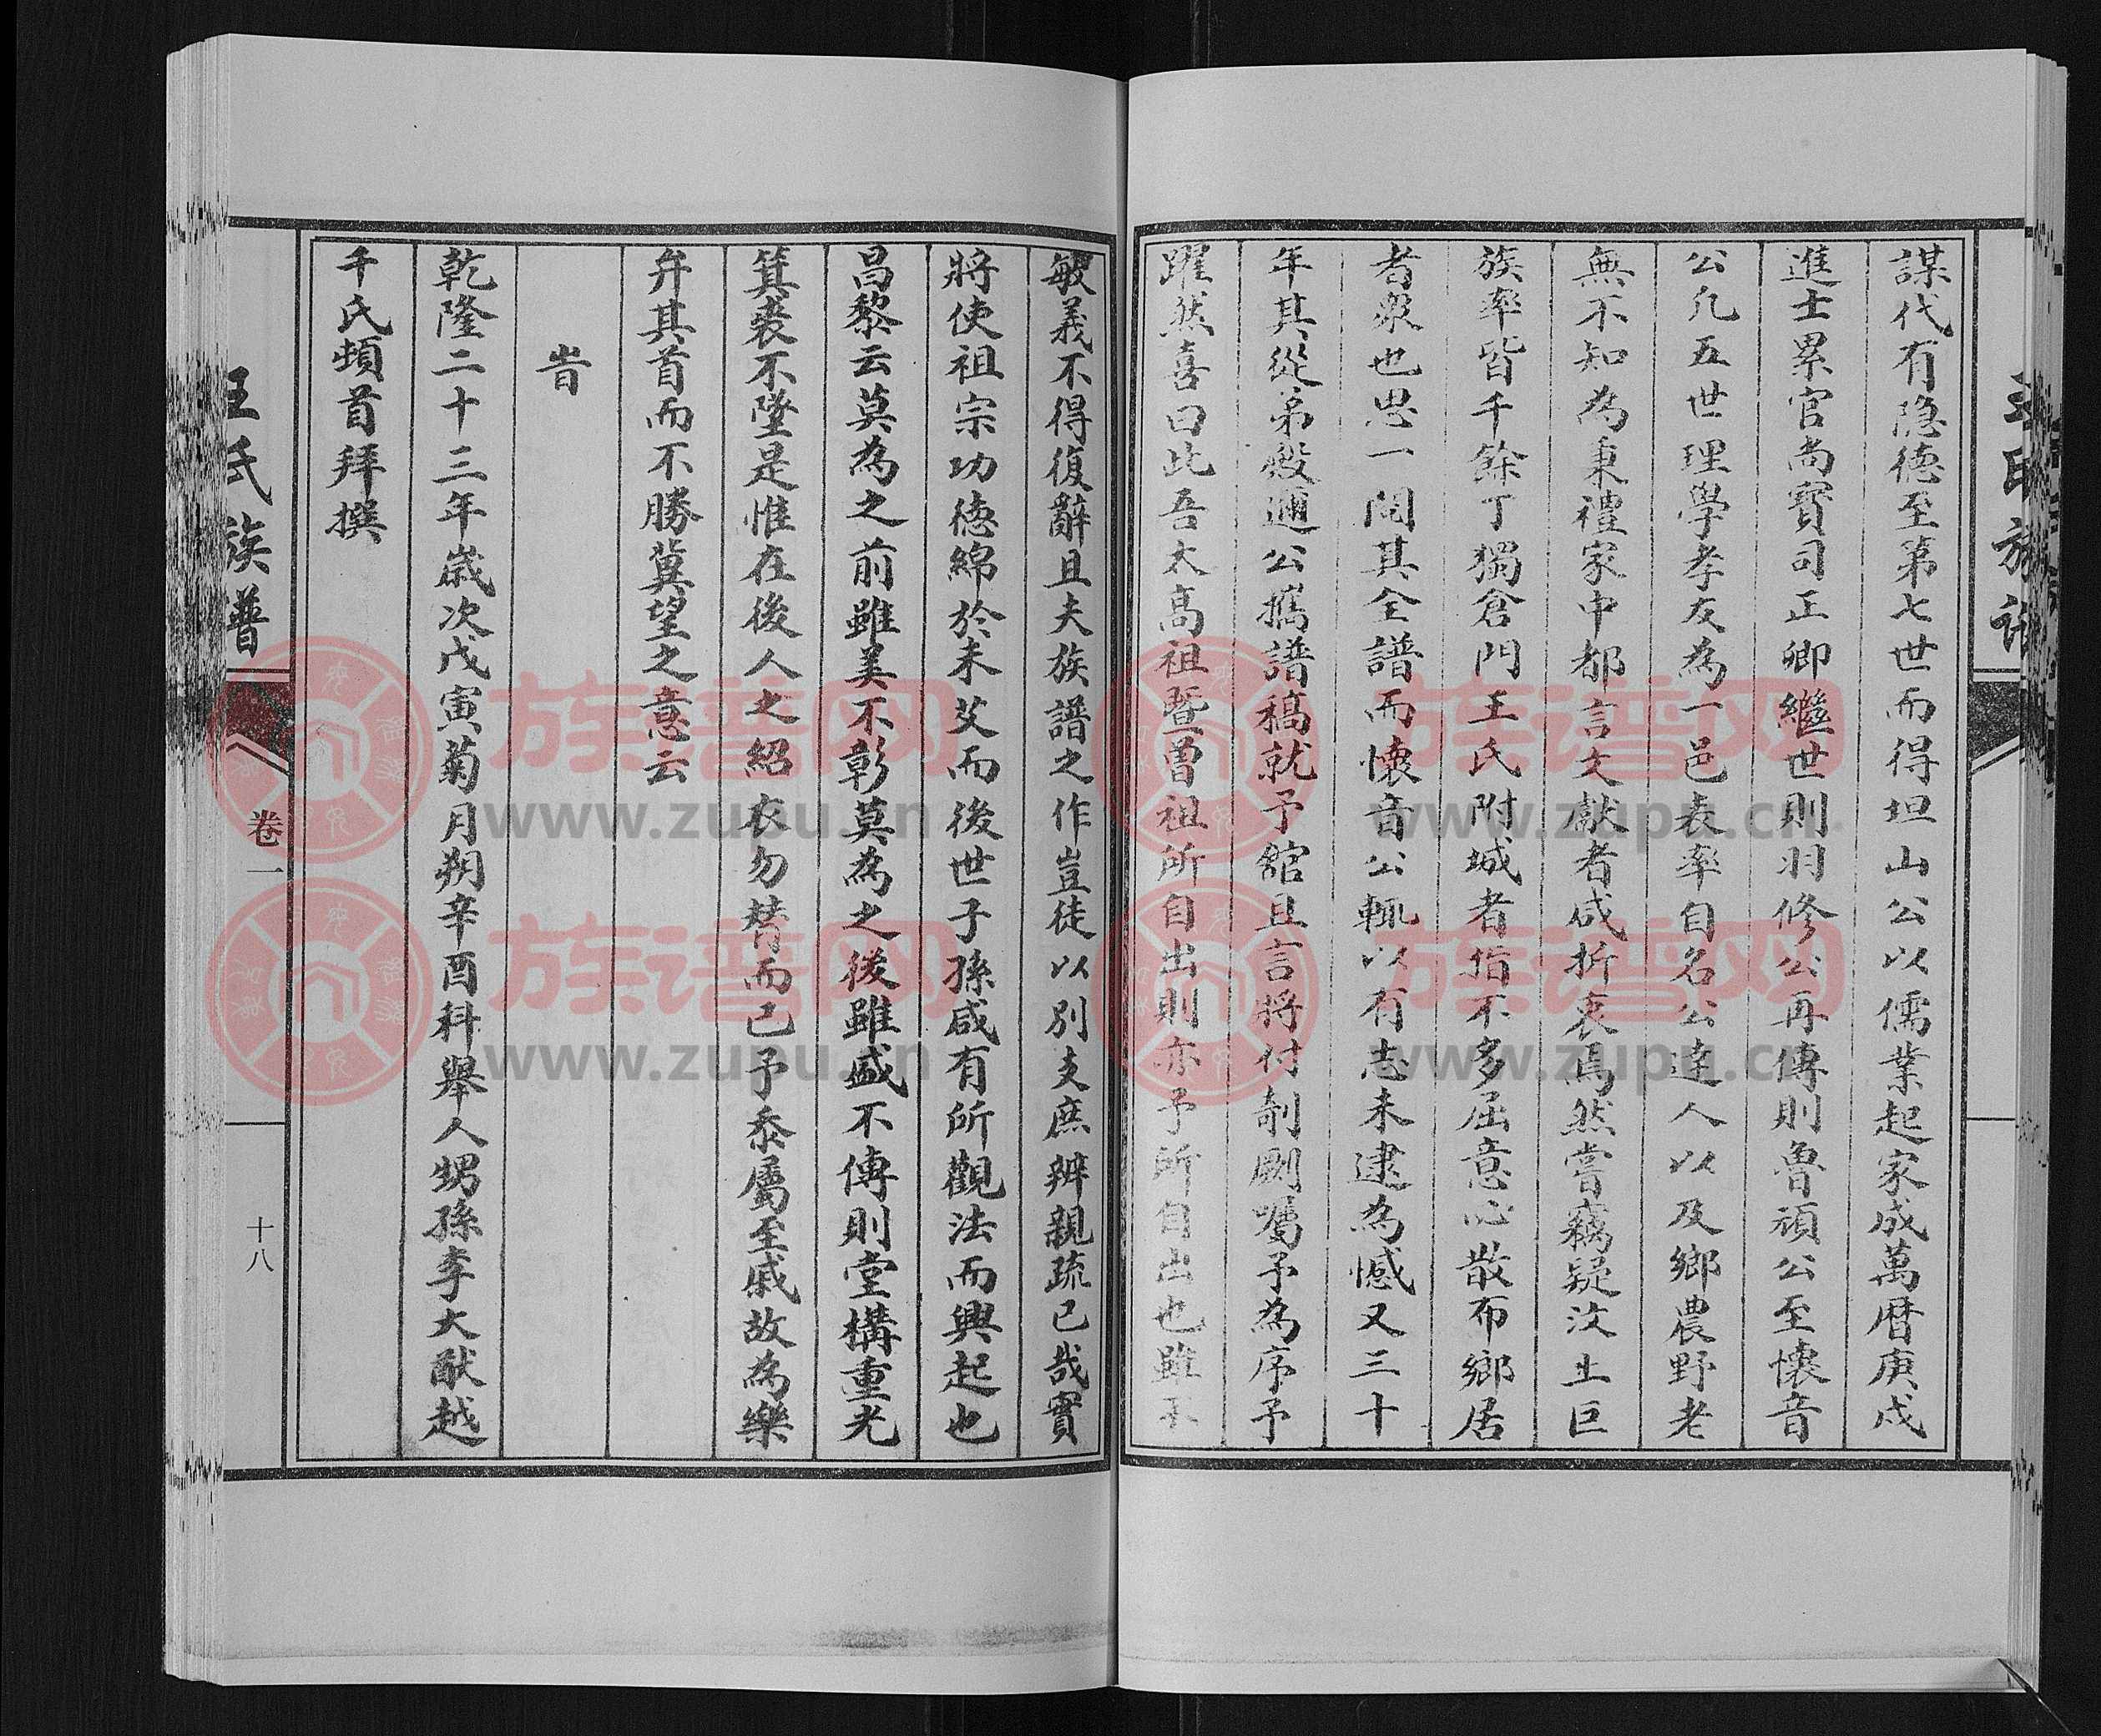 謀代有隐德至第七世而得坦山公以儒業起家成萬曆庚戌
進士累官尚寶司正卿繼世則羽修公再傳則魯頑公至懷音
公凡五世理學孝友為一邑表率自名公達人以及鄉農野老
無不知為秉禮家中都言文獻者咸折衷焉然嘗竊疑汶土巨
族率皆千餘丁獨倉門王氏附城者指不多屈意必散布鄉居
者衆也思一閱其全譜而懷音公輒以有志未逮為憾又三十
年其從弟殿邇公攜譜稿就予館且言將付剞劂囑予為序予
躍然喜曰此吾太高祖暨曾祖所自出則亦予所自出也雖不
敏義不得復辭且夫族譜之作豈徒以別支庶辨親疏已哉實
將使祖宗功德綿於未艾而後世子孫咸有所觀法而興起也
昌黎云莫為之前雖美不彰莫為之後雖盛不傳則堂構重光
箕裘不墜是惟在後人之紹衣勿替而已予忝屬至戚故為樂
弁其首而不勝冀望之意云
旹
乾隆二十三年歲次戊寅菊月朔辛酉科舉人甥孫李大猷越
千氏頓首拜撰
王氏族譜
卷一
十八
族谱网
www.zupu.cn